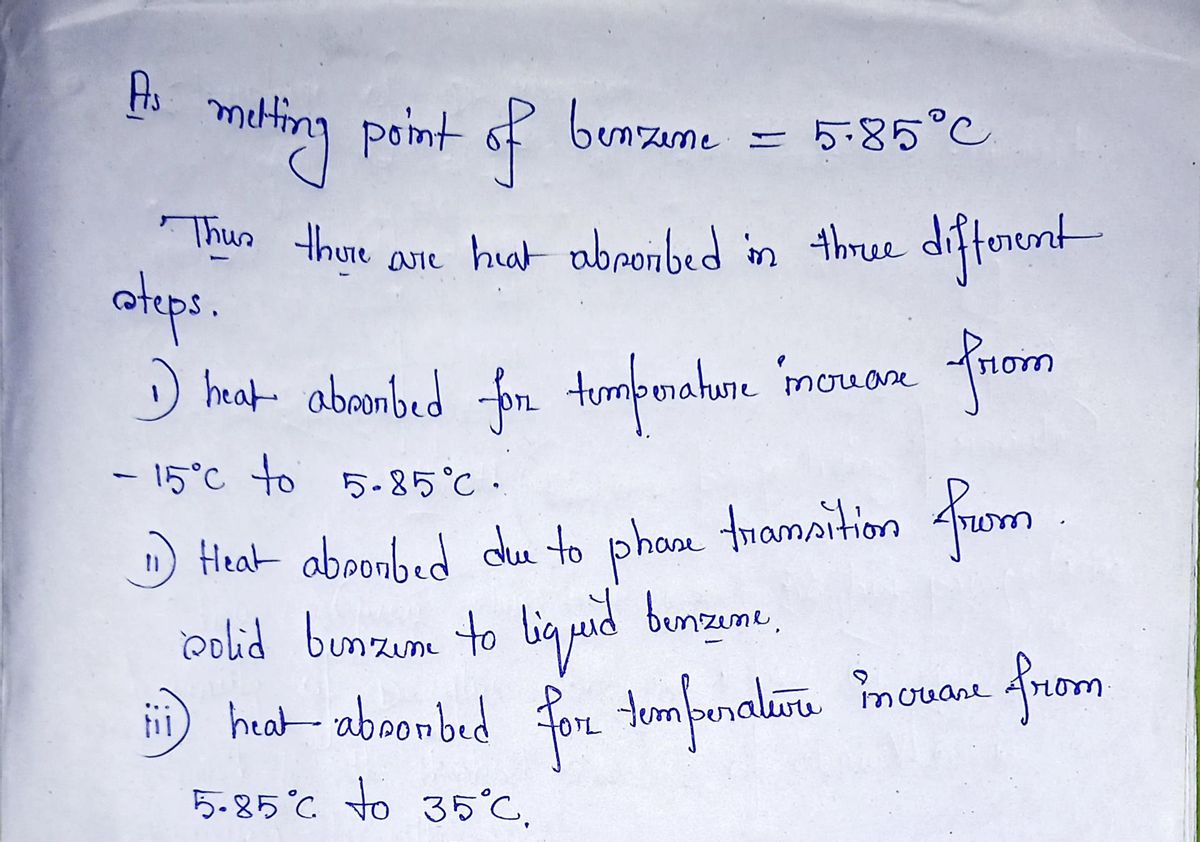 As melting point of benzene = 5.85°C
Thus there are heat absorbed in three different
steps.
i) heat absorbed for temperature increase from
- 15°C to 5.85°C.
ii) Heat absorbed due to phase transition from
solid benzene to liquid benzene.
iii) heat absorbed for temperature increase from
5.85°C to 35°C.